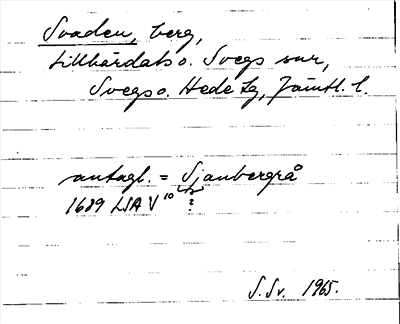 Svaden, berg,
Lillhärdals o. Svegs snr,
Svegs o. Hede tg, Jämtl. l.
antagl. = Sjanbergrå
1689 LSA V 10 ?
S. Sv. 1965.